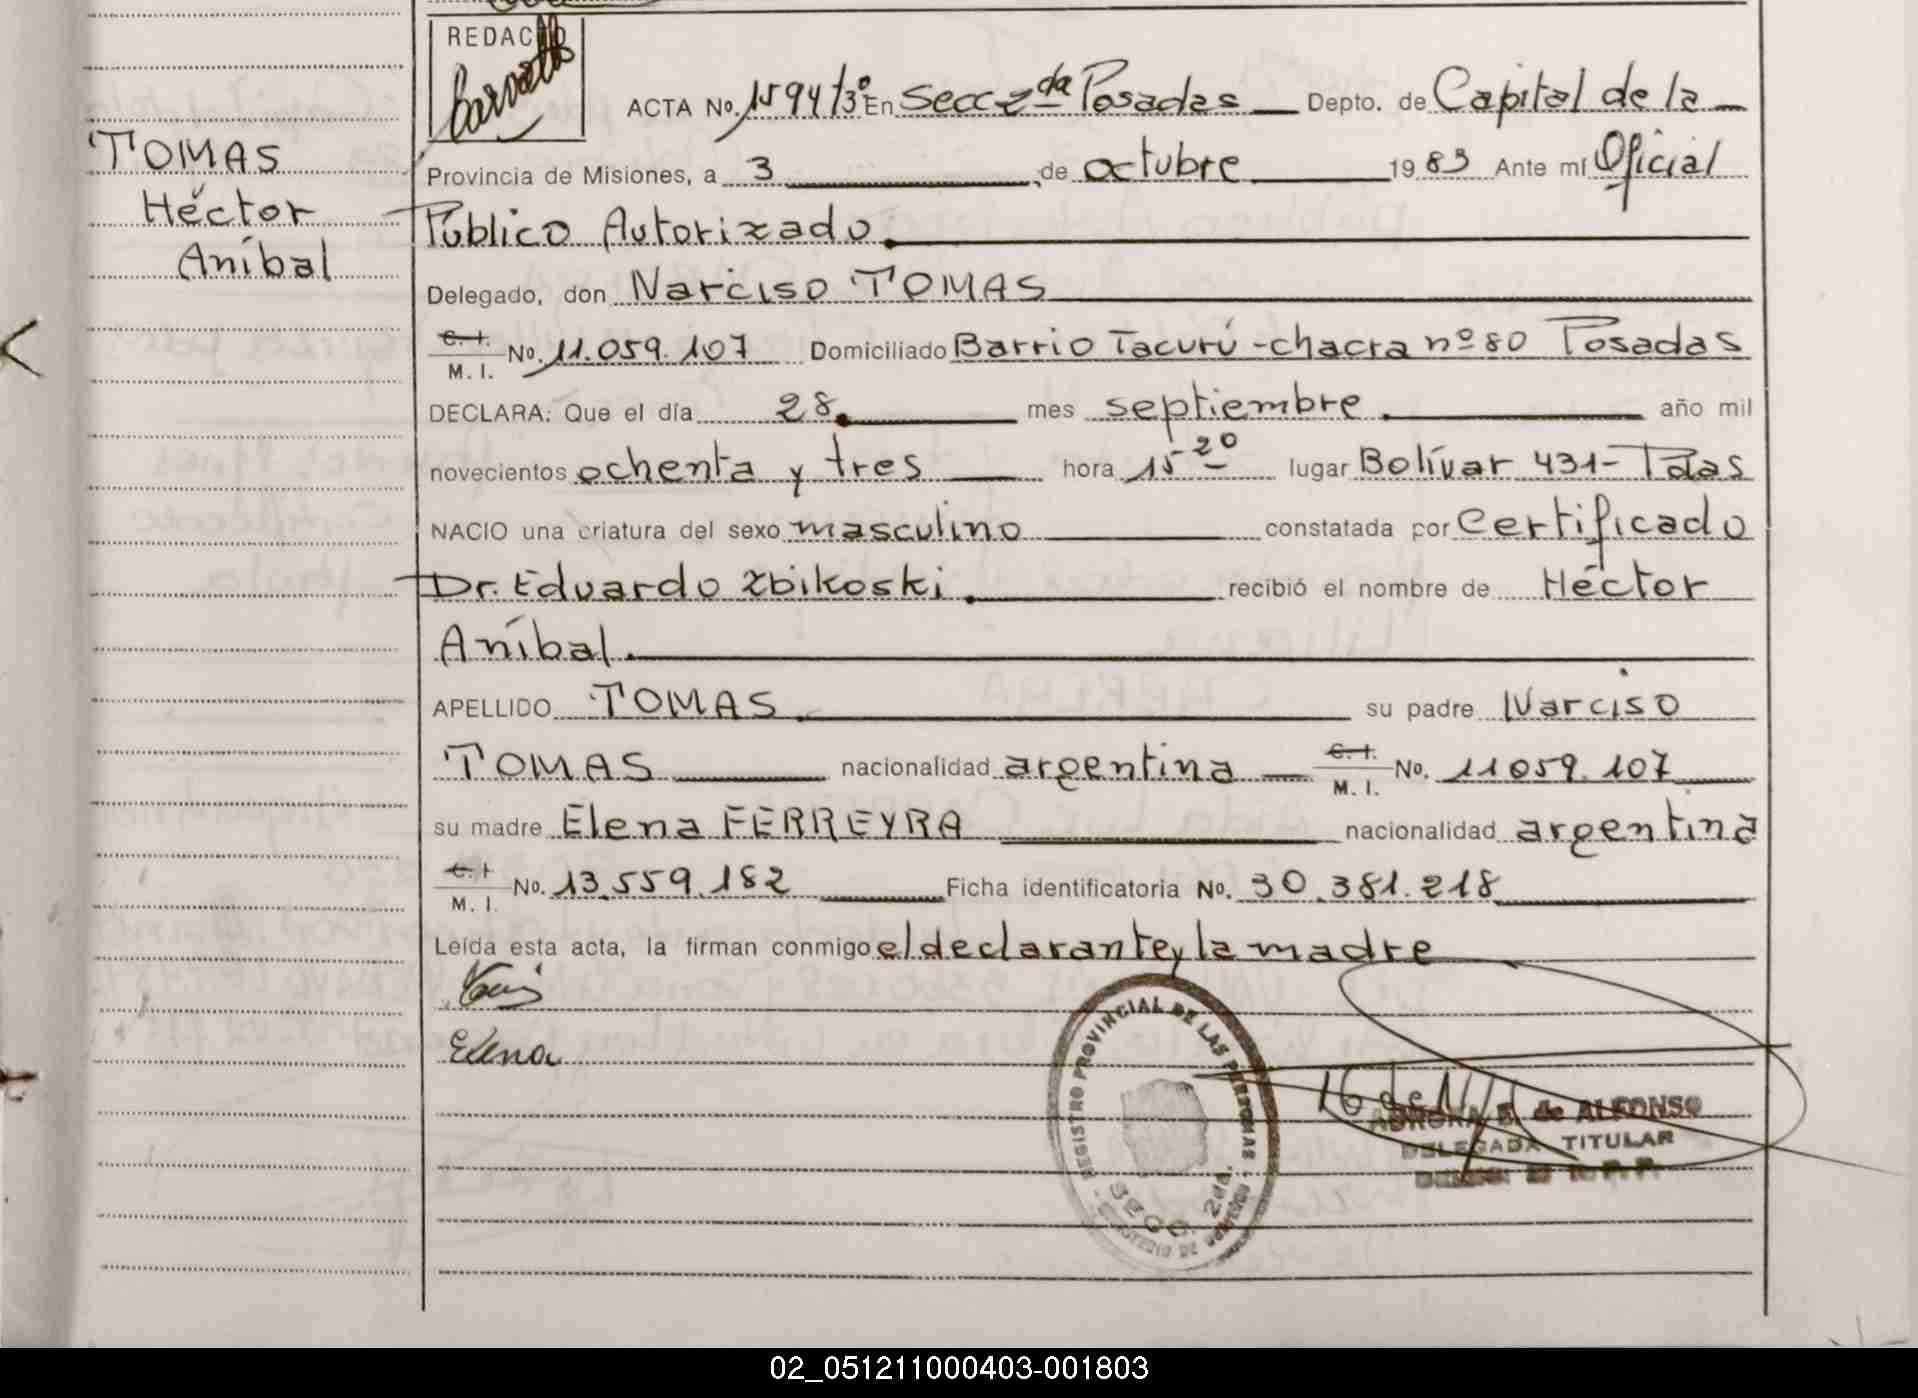 REDACTO
ACTA No. 1594/3º En Secc 2da Posadas Depto. de Capital de la
TOMAS
Héctor
Aníbal
Provincia de Misiones, a 3 de octubre 1983 Ante mí Oficial
Público Autorizado
Delegado, don Narciso TOMAS
C.I. M.I. No. 11.059.107 Domiciliado Barrio Tacurú - chacra nº 80 Posadas
DECLARA: Que el día 28 mes septiembre año mil
novecientos ochenta y tres hora 15 20 lugar Bolívar 431 - Pdas
NACIO una criatura del sexo masculino constatada por Certificado
Dr. Eduardo Zbikoski recibió el nombre de Héctor
Aníbal.
APELLIDO TOMAS su padre Narciso
TOMAS nacionalidad argentina C.I. M.I. No. 11059.107
su madre Elena FERREYRA nacionalidad argentina
C.I. M.I. No. 13.559.182 Ficha identificatoria No. 30.381.218
Leída esta acta, la firman conmigo el declarante y la madre
Elena
REGISTRO PROVINCIAL DE LAS PERSONAS
SECC. 2da.
E. de ALFONSO
DELEGADA TITULAR
02_051211000403-001803